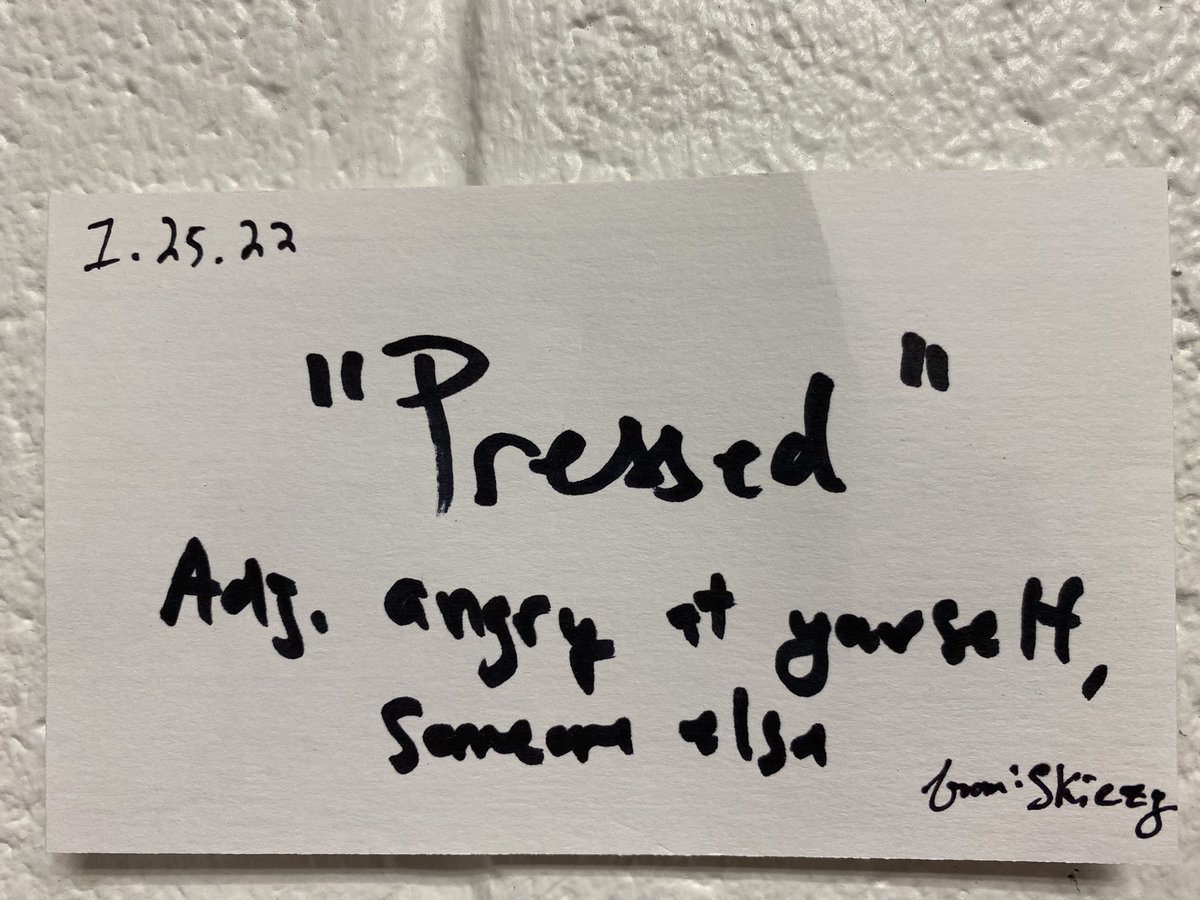 1.25.22
"Pressed"
Adj. angry at yourself,
someone else
from: Skiezy